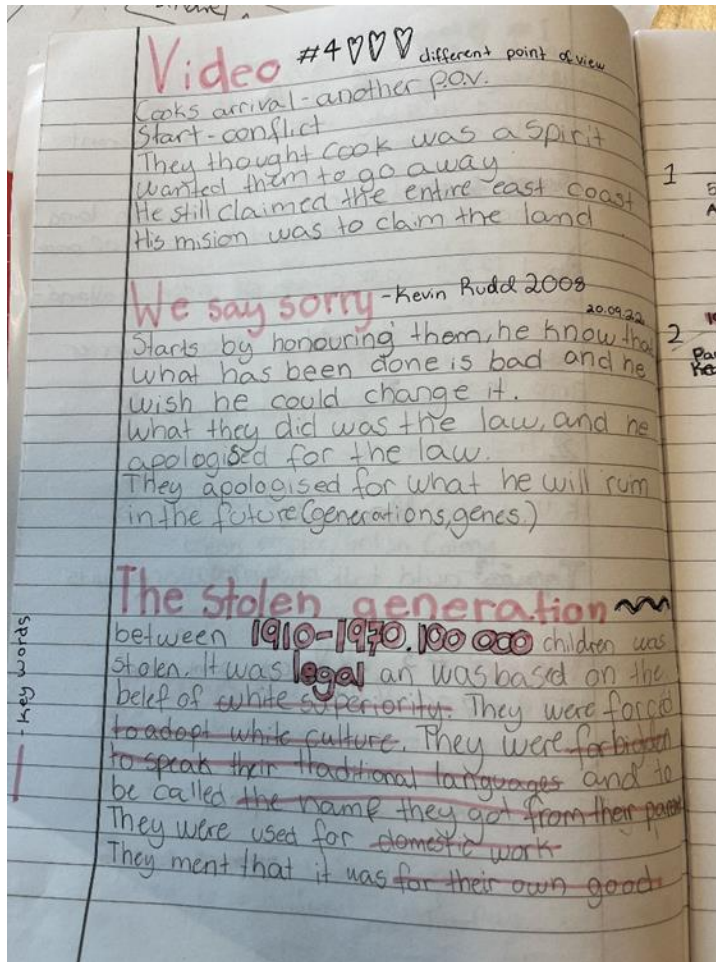 Video #4♡♡♡ different point of view
Cooks arrival - another p.o.v.
Start - conflict
They thought cook was a spirit
wanted them to go away
He still claimed the entire east coast
His mision was to claim the land
We say sorry - Kevin Rudd 2008
20.09.22
Starts by honouring them, he know that
what has been done is bad and he
wish he could change it.
What they did was the law, and he
apologised for the law.
They apologised for what he will ruin
in the future (generations, genes.)
The stolen generation
between 1910-1970. 100 000 children was
stolen. It was legal an was based on the
belef of white superiority. They were forced
to adopt white culture. They were forbidden
to speak their traditional languages and to
be called the name they got from their parent
They were used for domestic work
They ment that it was for their own good
- Key words
1
2